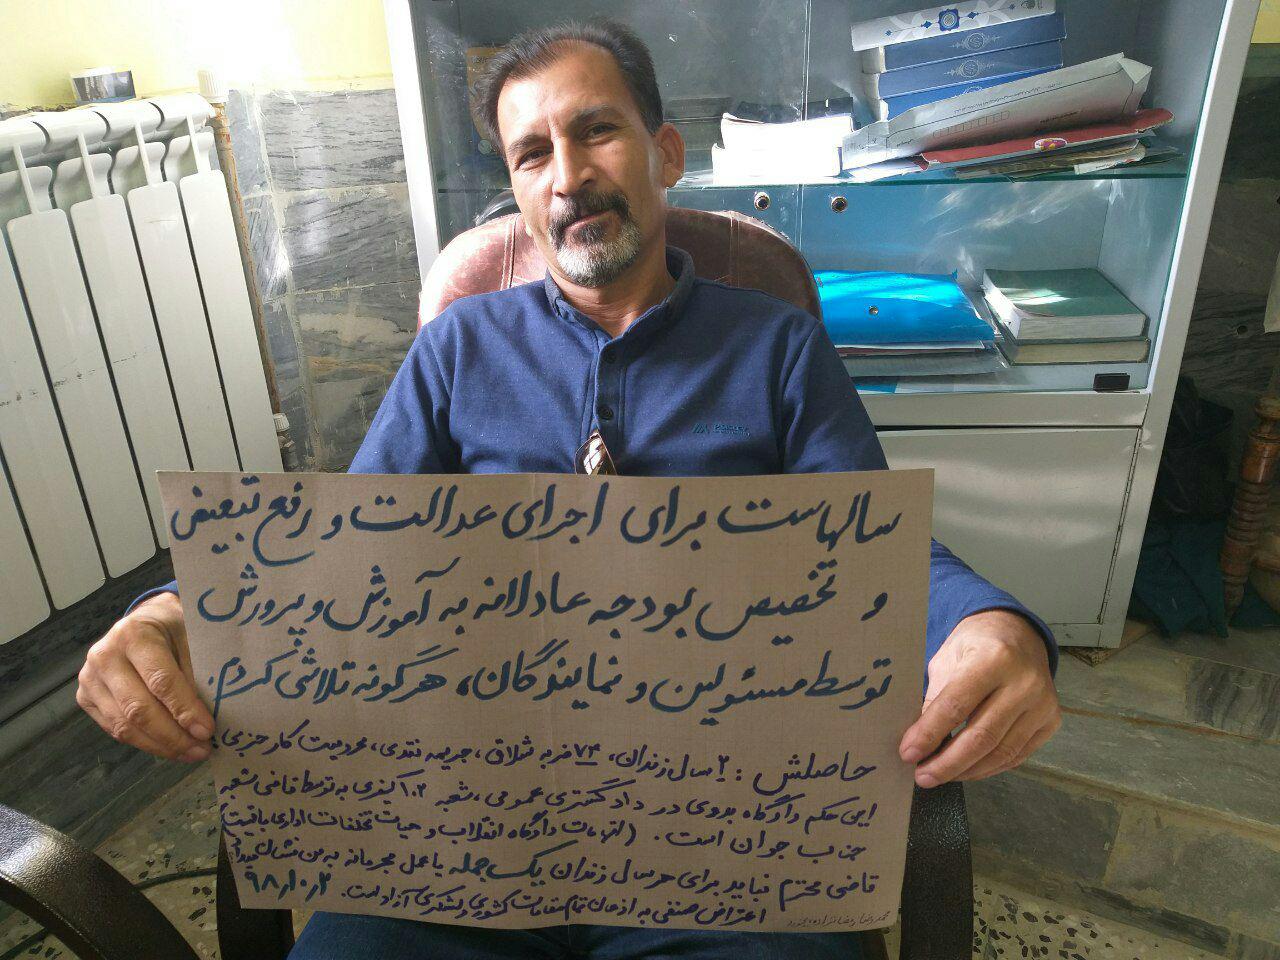 سالهاست برای اجرای عدالت و رفع تبعیض
و تخصیص بودجه عادلانه به آموزش و پرورش
توسط مسئولین و نمایندگان، هرگونه تلاشی کردم.
حاصلش: ۲ سال زندان، ۷۴ ضربه شلاق، جریمه نقدی، محرومیت کار حزبی؛
این حکم دادگاه بدوی در دادگستری عمومی، شعبه ۱۰۲ کیفری به توسط قاضی شعبه
جناب جوان است. (اتهامات دادگاه انقلاب و هیات تخلفات اداری باقیست)
قاضی محترم نباید برای هر سال زندان یک جمله یا عمل مجرمانه به من نشان میداد؟
اعتراض صنفی به اذعان تمام مقامات کشوری و لشکری آزاد است.
۹۸/۱۰/۲
محمدرضا رمضانزاده